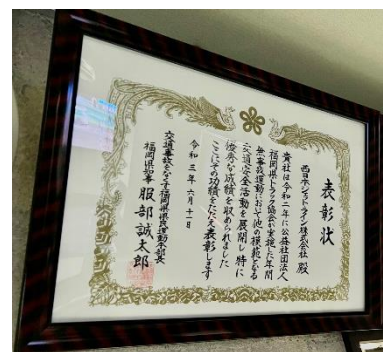 表彰状
西日本ジェットライン株式会社 殿
貴社は令和二年に公益社団法人
福岡県トラック協会が実施した年間
無事故運動において他の模範となる
交通安全活動を展開し特に
優秀な成績を収められました
ここにその功績をたたえ表彰します
令和三年六月十一日
交通事故をなくす福岡県県民運動本部長
福岡県知事 服部誠太郎